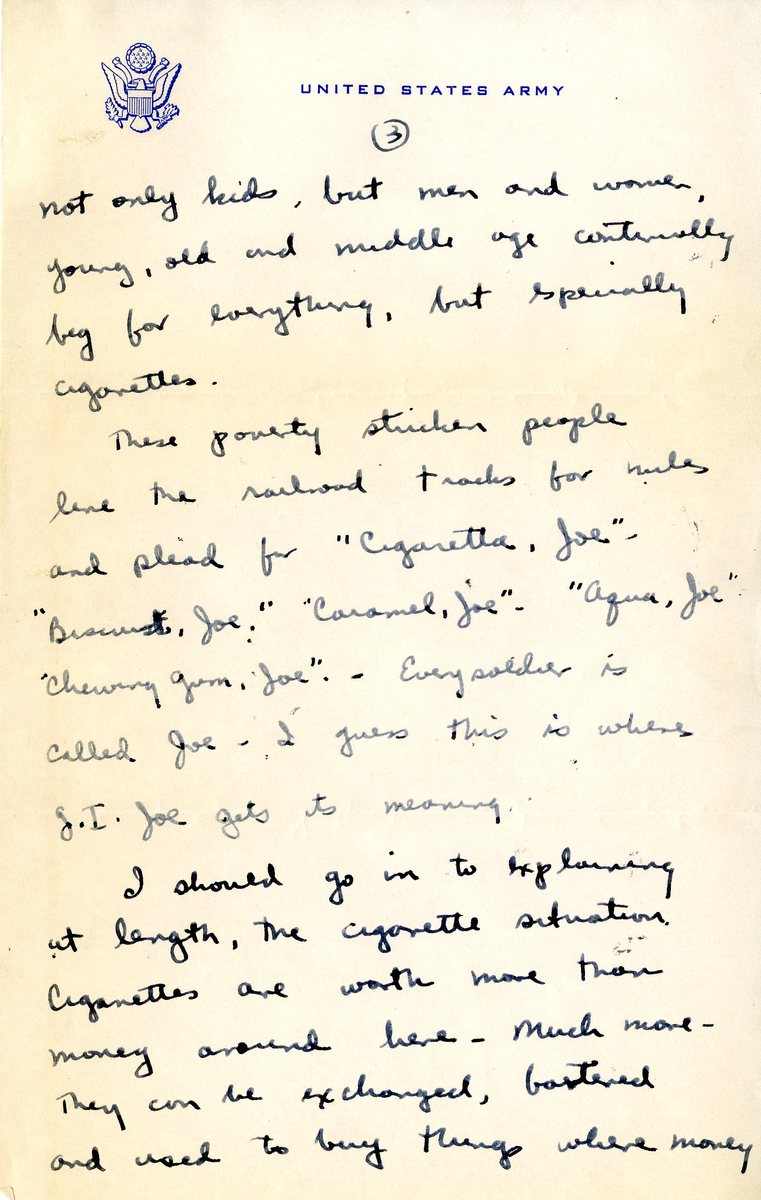 UNITED STATES ARMY
3
not only kids, but men and women,
young, old and middle age continually
beg for everything, but especially
cigarettes.
These poverty stricken people
line the railroad tracks for miles
and plead for "Cigaretta, Joe" -
"Biscuist, Joe." "Caramel, Joe" - "Aqua, Joe"
"Chewing gum, Joe". - Every soldier is
called Joe - I guess this is where
G.I. Joe gets its meaning.
I should go in to explaining
at length, the cigarette situation.
Cigarettes are worth more than
money around here - Much more -
They can be exchanged, bartered
and used to buy things where money